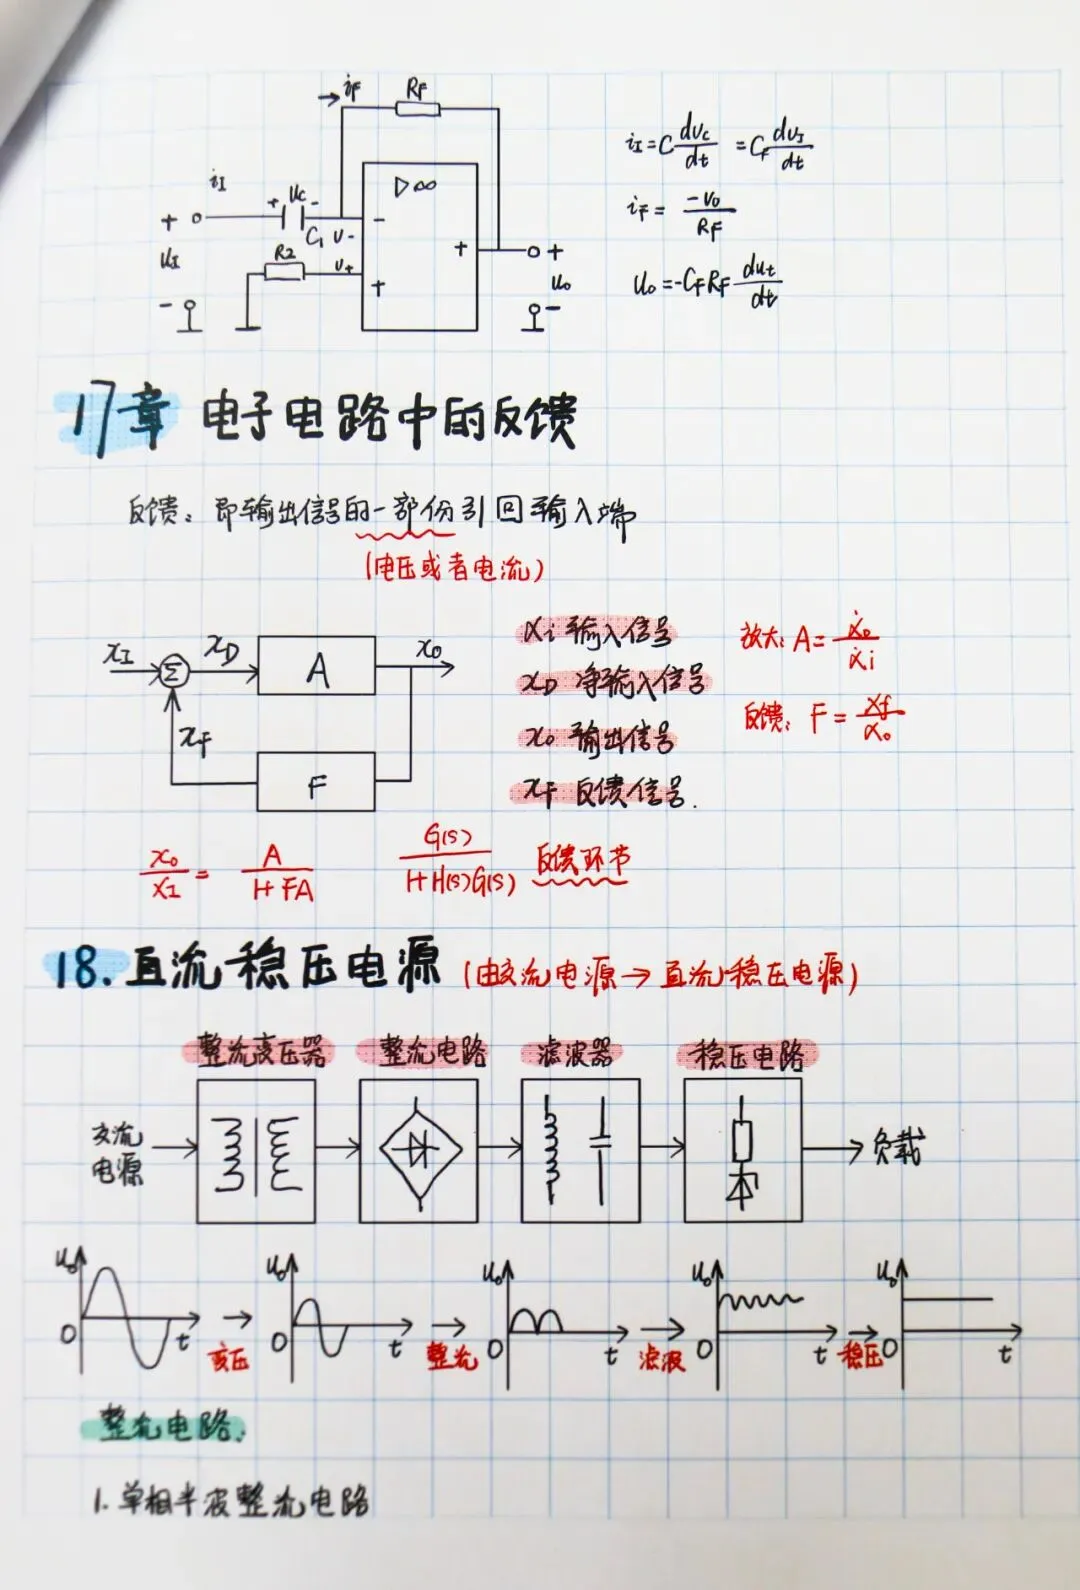 iF RF
iI + uc -
+ C1 u- -
uI R2 u+ +
-
▷∞
+ + uo -
iI = C duc/dt = CF duI/dt
iF = -uo/RF
uo = -CF RF dut/dt
17章 电子电路中的反馈
反馈：即输出信号的一部份引回输入端
(电压或者电流)
xI Σ xD A xo
xF F
xi 输入信号
xD 净输入信号
xo 输出信号
xF 反馈信号.
放大: A = ẋo/ẋi
反馈: F = xf/xo
xo/xI = A/(1+FA)
G(s)/(1+H(s)G(s)) 反馈环节
18. 直流稳压电源 (由交流电源→直流稳压电源)
整流变压器 整流电路 滤波器 稳压电路
交流电源 负载
uo 0 t 变压 uo 0 t 整流 uo 0 t 滤波 uo 0 t 稳压 uo 0 t
整流电路.
1. 单相半波整流电路